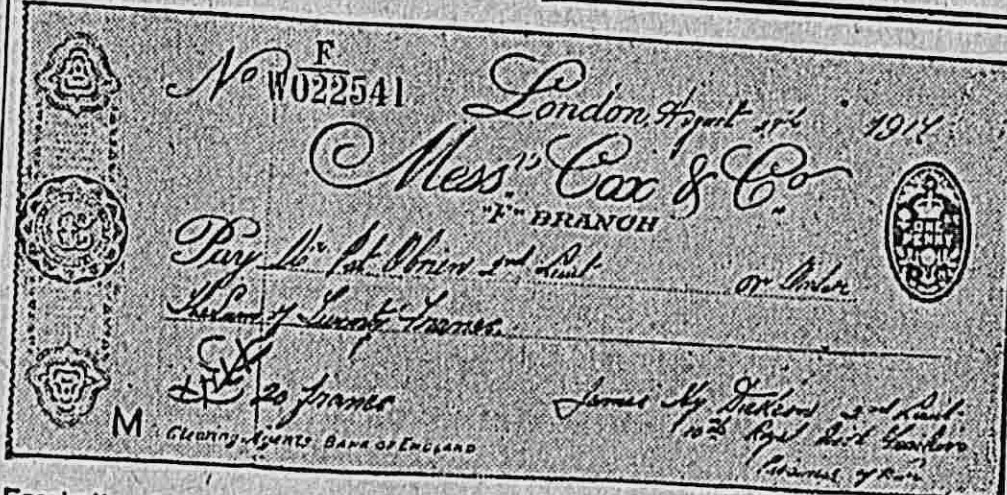 No F
W022541
London, August 1917
Mess.rs Cox & Co
"F" BRANCH
ONE
PENNY
Pay Mr Pat Obrien 2nd Lieut or Order
The Sum of Twenty Francs
20 francs
James Hy Dickson 2nd Lieut
10th Royal Irish
Prisoner of War
M
Clearing Agents BANK OF ENGLAND